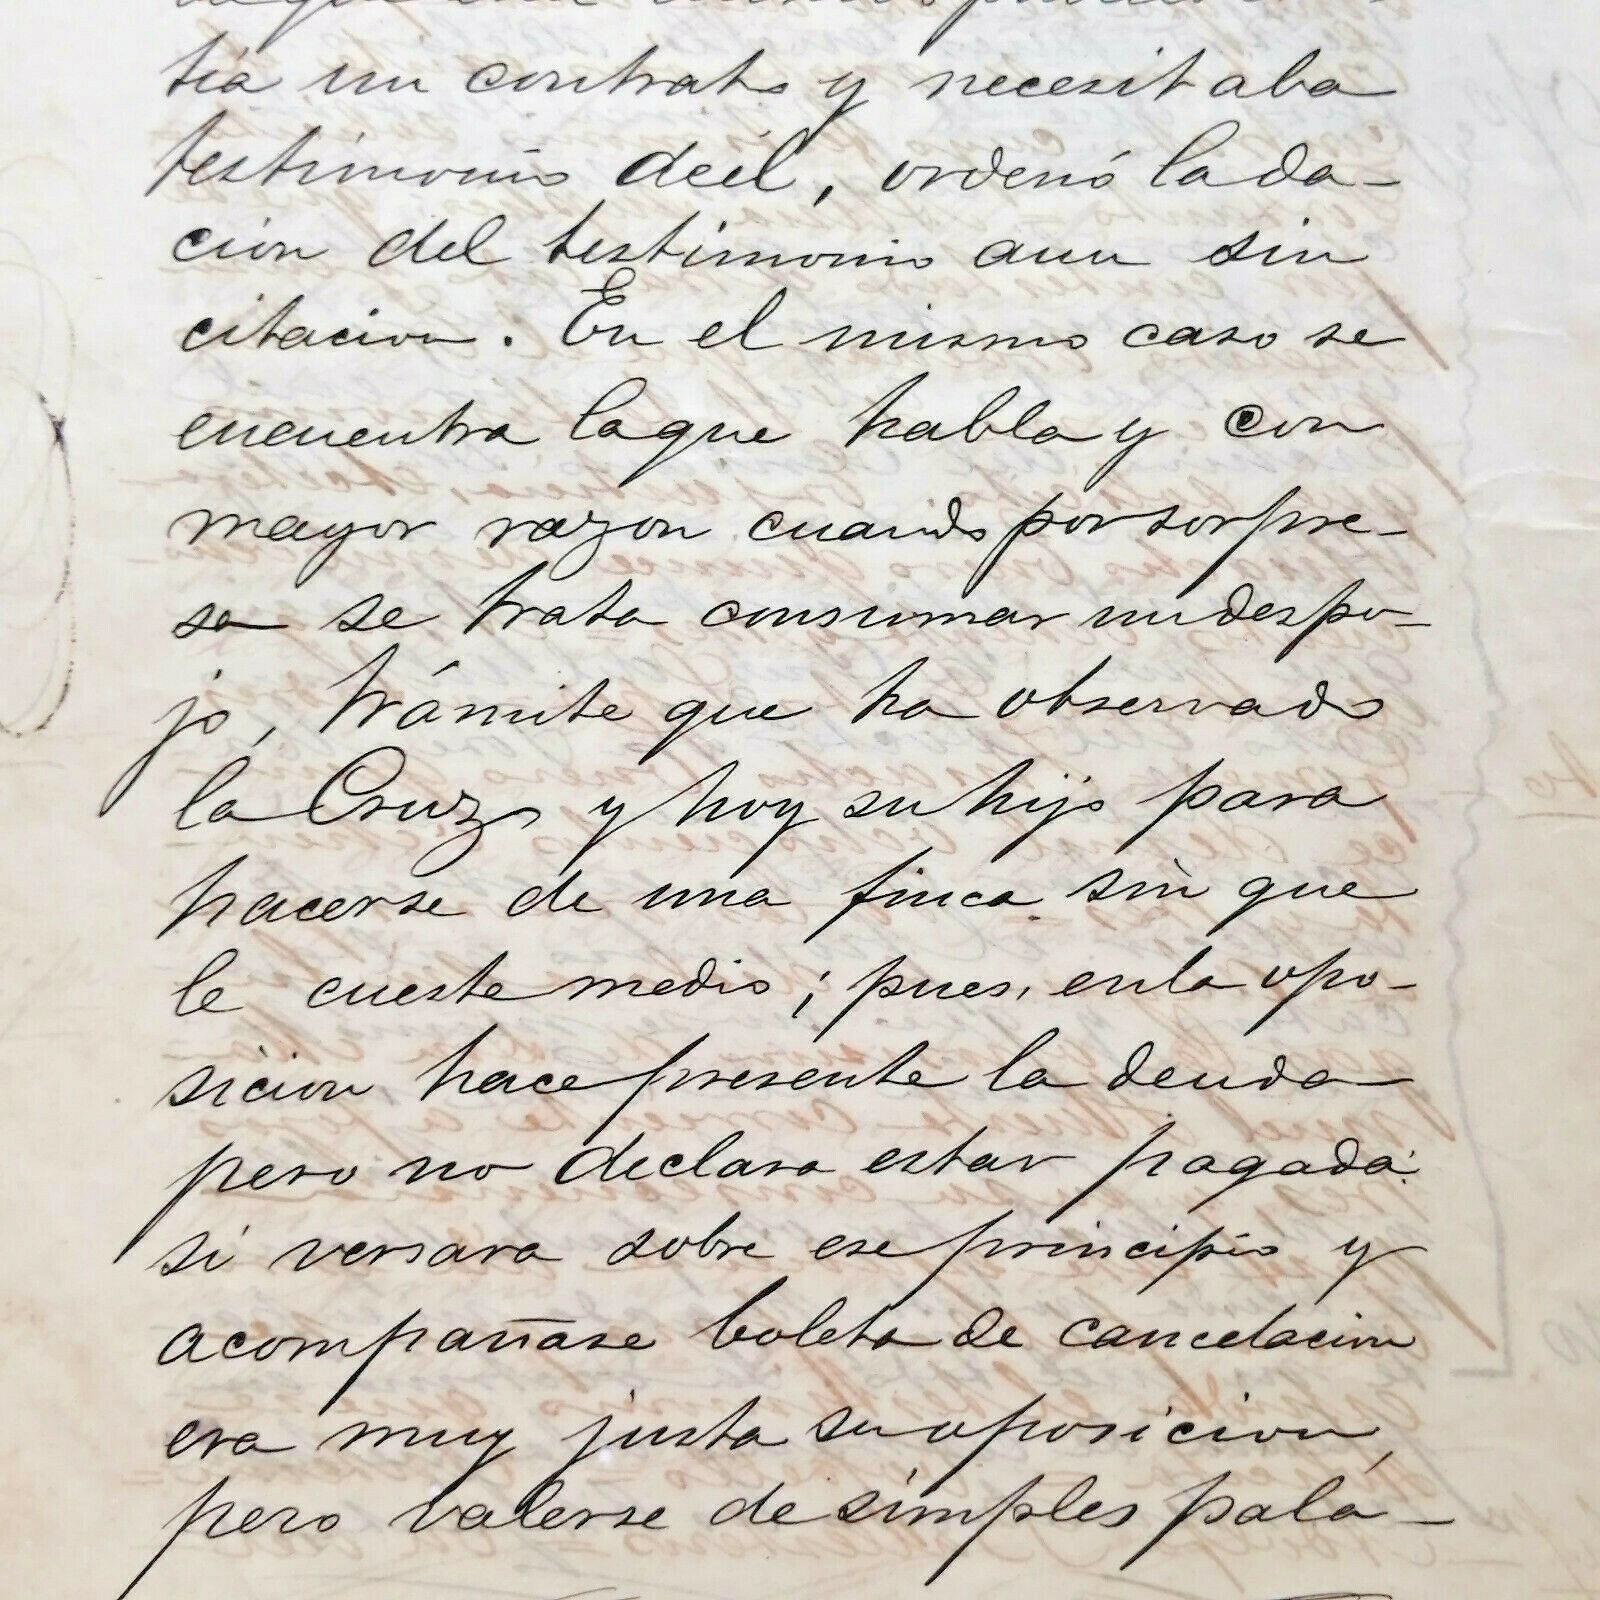 tia un contrato y necesitaba
testimonio deél, ordenó la da-
cion del testimonio aun sin
citacion. En el mismo caso se
encuentra laque habla y con
mayor razon cuando por sorpre-
sa se trata consumar un despo-
jo, trámite que ha observado
la Cruz y hoy su hijo para
hacerse de una finca sin que
le cueste medio; pues, en la opo-
sicion hace presente la deuda
pero no declara estar pagada:
si versara sobre ese principio y
acompañase boleta de cancelacion
era muy justa su oposicion,
pero valerse de simples pala-